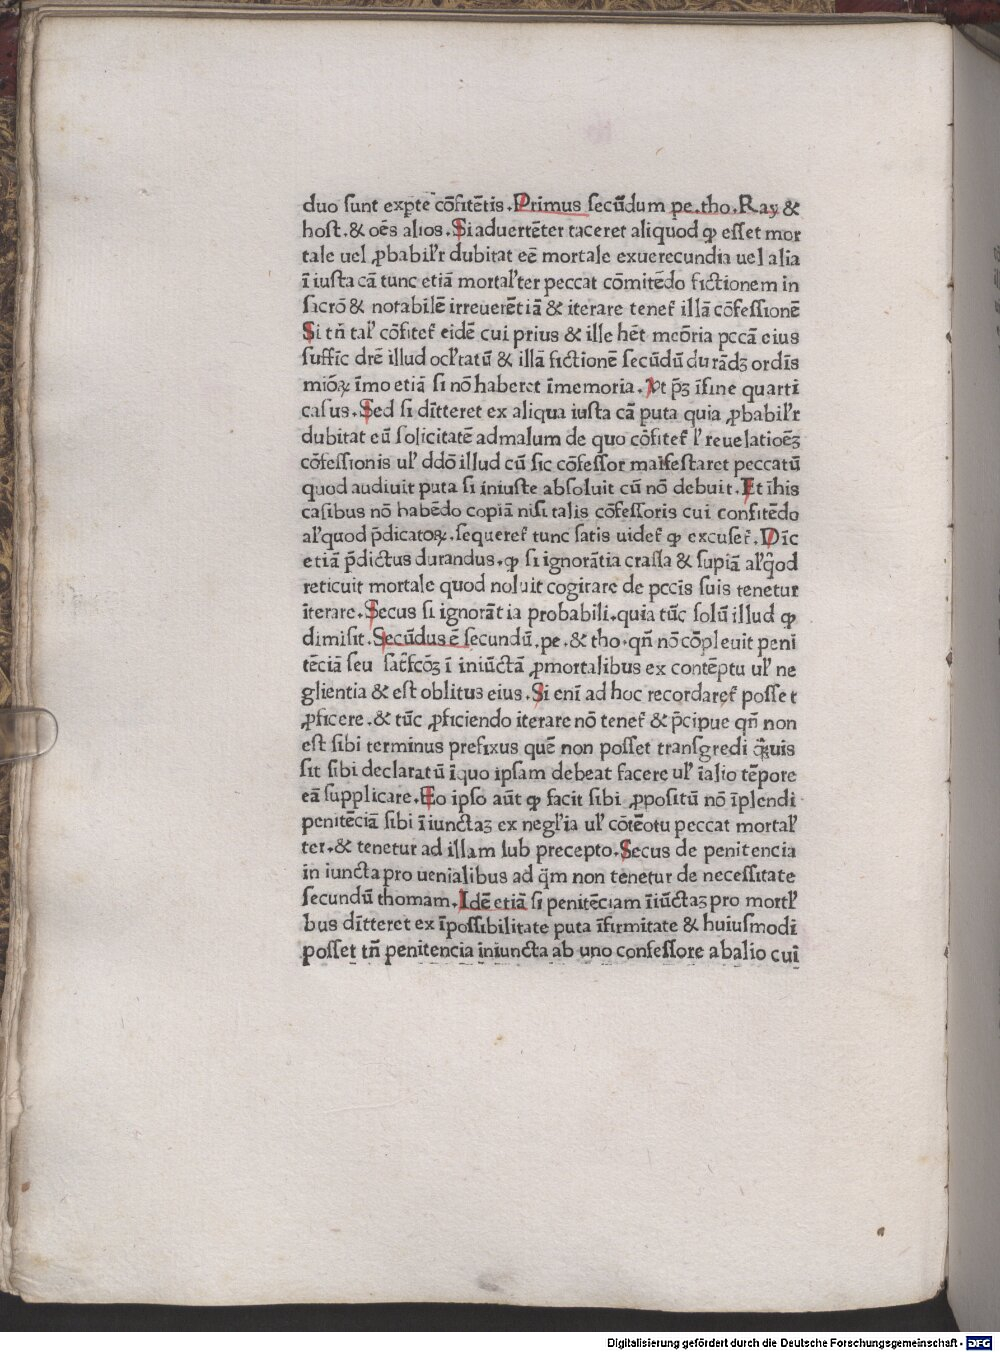 duo sunt expte cōfitētis. Primus secūdum pe. tho. Ray &
host. & oēs alios. Si aduertēter taceret aliquod ꝙ esset mor
tale uel ꝓbabilr̄ dubitat eē mortale exuerecundia uel alia
ī iusta cā tunc etiā mortalʼter peccat cōmitēdo fictionem in
sacrō & notabilē irreuerētiā & iterare tenet᷑ illā cōfessionē
Si tn̄ talʼ cōfitet᷑ eidē cui prius & ille hēt meōria pccā eius
suffic̄ drē illud oclʼtatū & illā fictionē secūdū durādꝫ ordīs
miōꝝ īmo etiā si nō haberet īmemoria. Vt p̄ꝫ īfine quarti
casus. Sed si dīteret ex aliqua iusta cā puta quia ꝓbabilʼr
dubitat eū solicitatē admalum de quo cōfitet᷑ lʼ reuelatioēꝫ
cōfessionis ulʼ ddō illud cū sic cōfessor maīfestaret peccatū
quod audiuit puta si iniuste absoluit cū nō debuit. Et īhis
casibus nō habēdo copiā nisi talis cōfessoris cui confitēdo
alʼquod p̄dicatoꝝ. sequeret᷑ tunc satis uidet᷑ ꝙ excuset᷑. Dīc
etiā p̄dictus durandus. ꝙ si ignorātia crassa & supiā alʼq̄od
reticuit mortale quod noluit cogitare de pccīs suis tenetur
iterare. Secus si ignorātia probabili. quia tūc solū illud ꝙ
dimisit. Secūdus ē secundū. pe. & tho. qn̄ nō cōpleuit peni
tēciā seu sat᷑fcōꝫ ī iniūctā ꝓmortalibus ex contēptu ulʼ ne
glientia & est oblitus eius. Si enī ad hoc recordaret᷑ posset
ꝓficere. & tūc ꝓficiendo iterare nō tenet᷑ & p̄cipue qn̄ non
est sibi terminus prefixus quē non posset transgredi q̄ꝫuis
sit sibi declaratū īquo ipsam debeat facere ulʼ īalio tēpore
eā supplicare. Eo ipso aūt ꝙ facit sibi ꝓpositū nō īplendi
penitēciā sibi ī iunctaꝫ ex neglʼia ulʼ cōtēotu peccat mortalʼ
ter. & tenetur ad illam sub precepto. Secus de penitencia
in iuncta pro uenialibus ad q̄m non tenetur de necessitate
secundū thomam. Idē etiā si penitēciam īiūctaꝫ pro mortlʼ
bus dīteret ex īpossibilitate puta īfirmitate & huiusmodi
posset tn̄ penitencia iniuncta ab uno confessore abalio cui
Digitalisierung gefördert durch die Deutsche Forschungsgemeinschaft - DFG